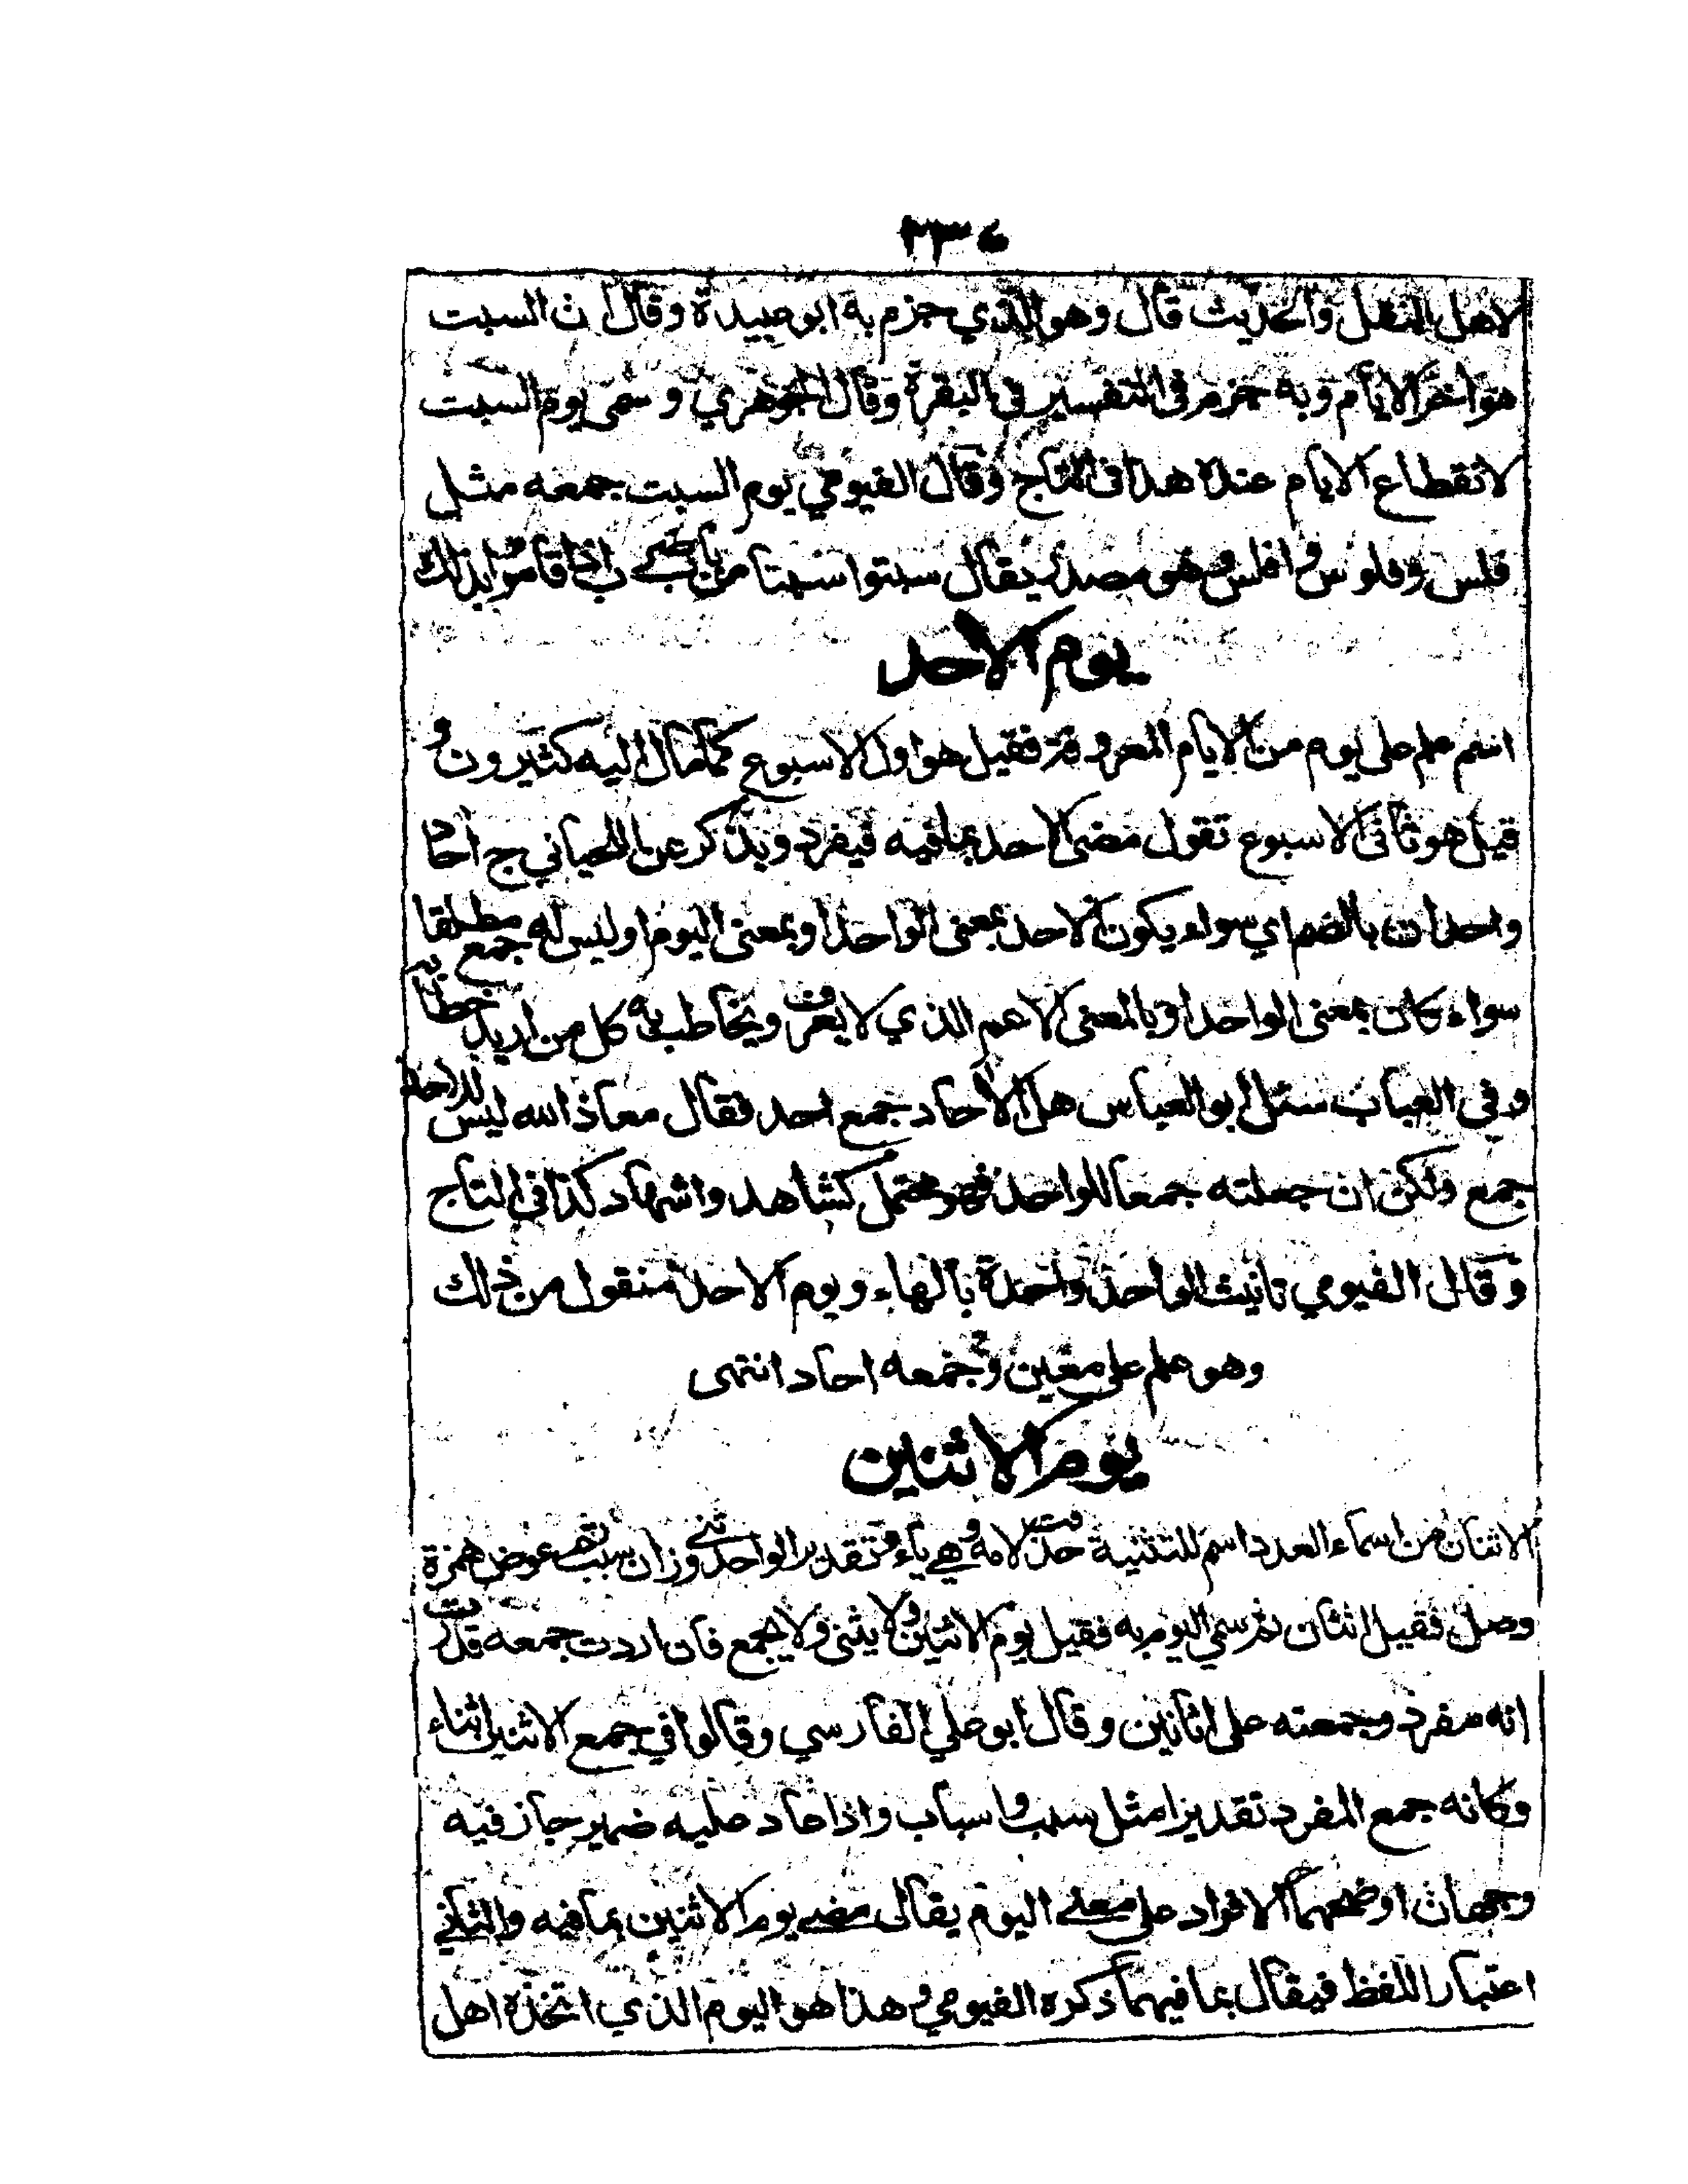 ٢٣٤
لاهل النقل والحديث قال وهو الذي جزم به ابو عبيدة وقال ان السبت
هو اخر الايام وبه جزم في التفسير في البقرة وقال الجوهري وسمى يوم السبت
لانقطاع الايام عنده هذا في التاج وقال الفيومي يوم السبت جمعه مثل
فلس وفلوس وافلس وهو مصدر يقال سبتوا سبتا من باب اذا قاموا بذلك
يوم الاحد
اسم علم على يوم من الايام المعروفة فقيل هو اول الاسبوع كما مال اليه كثيرون و
قيل هو ثاني الاسبوع تقول مضى الاحد بما فيه فيفرد ويذكر عن اللحياني ج احاد
واحدان بالضم اي سواء يكون الاحد بمعنى الواحد او بمعنى اليوم او ليس له جمع مطلقا
سواء كان بمعنى الواحد او بالمعنى الاعم الذي لا يعرف ويخاطب به كل من اريد خطابه
وفي العباب سئل ابو العباس هل الاحاد جمع احد فقال معاذ الله ليس للاحد
جمع ولكن ان جعلته جمعا للواحد فهو محتمل كشاهد واشهاد كذا في التاج
وقال الفيومي تانيث الواحد واحدة بالهاء ويوم الاحد منقول من ذلك
وهو علم على معين وجمعه احاد انتهى
يوم الاثنين
الاثنان من اسماء العدد اسم للتثنية حذفت لامه وهي ياء وتقدير الواحد ثني وزان سبب ثم عوض همزة
وصل فقيل اثنان ثم سمي اليوم به فقيل يوم الاثنين ولا يثنى ولا يجمع فان اردت جمعه قدرت
انه مفرد وجمعته على اثانين وقال ابو علي الفارسي وقالوا في جمع الاثنين اثناء
وكانه جمع المفرد تقديرا مثل سبب واسباب واذا عاد عليه ضمير جاز فيه
وجهان اوضحهما الافراد على معنى اليوم يقال مضى يوم الاثنين بما فيه والثاني
اعتبار اللفظ فيقال بما فيهما ذكره الفيومي وهذا هو اليوم الذي اتخذه اهل